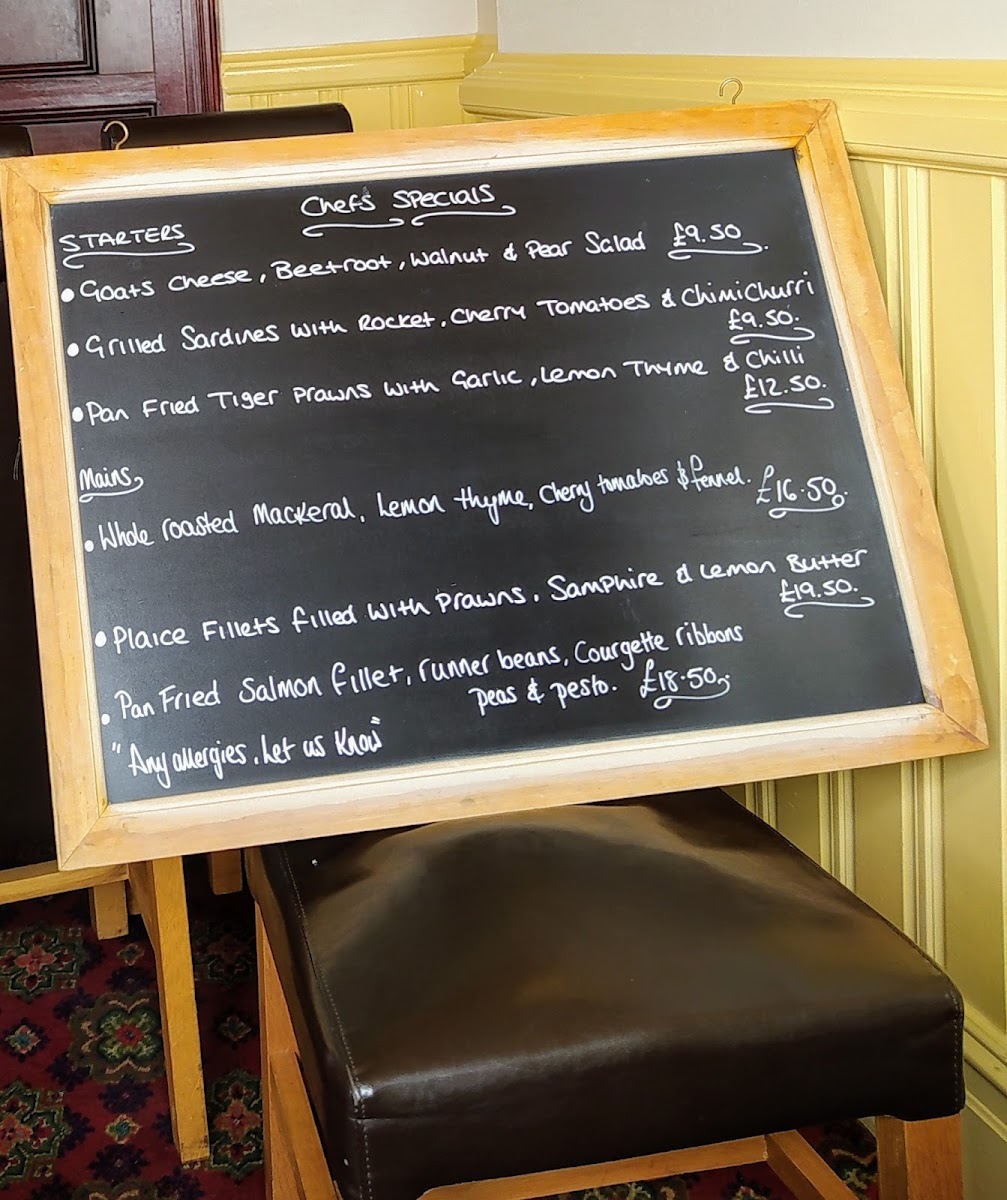 Chefs Specials
STARTERS
• Goats cheese, Beetroot, Walnut & Pear Salad £9.50.
• Grilled Sardines with Rocket, Cherry Tomatoes & Chimichurri
£9.50.
• Pan Fried Tiger Prawns with Garlic, Lemon Thyme & Chilli
£12.50.
Mains
• Whole roasted Mackeral, Lemon thyme, Cherry tomatoes & fennel. £16.50.
• Plaice Fillets filled with Prawns, Samphire & Lemon Butter
£19.50.
• Pan Fried Salmon fillet, runner beans, Courgette ribbons
peas & pesto. £18.50.
"Any allergies, Let us Know"